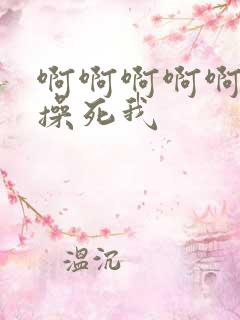 啊啊啊啊啊
操死我
温沉